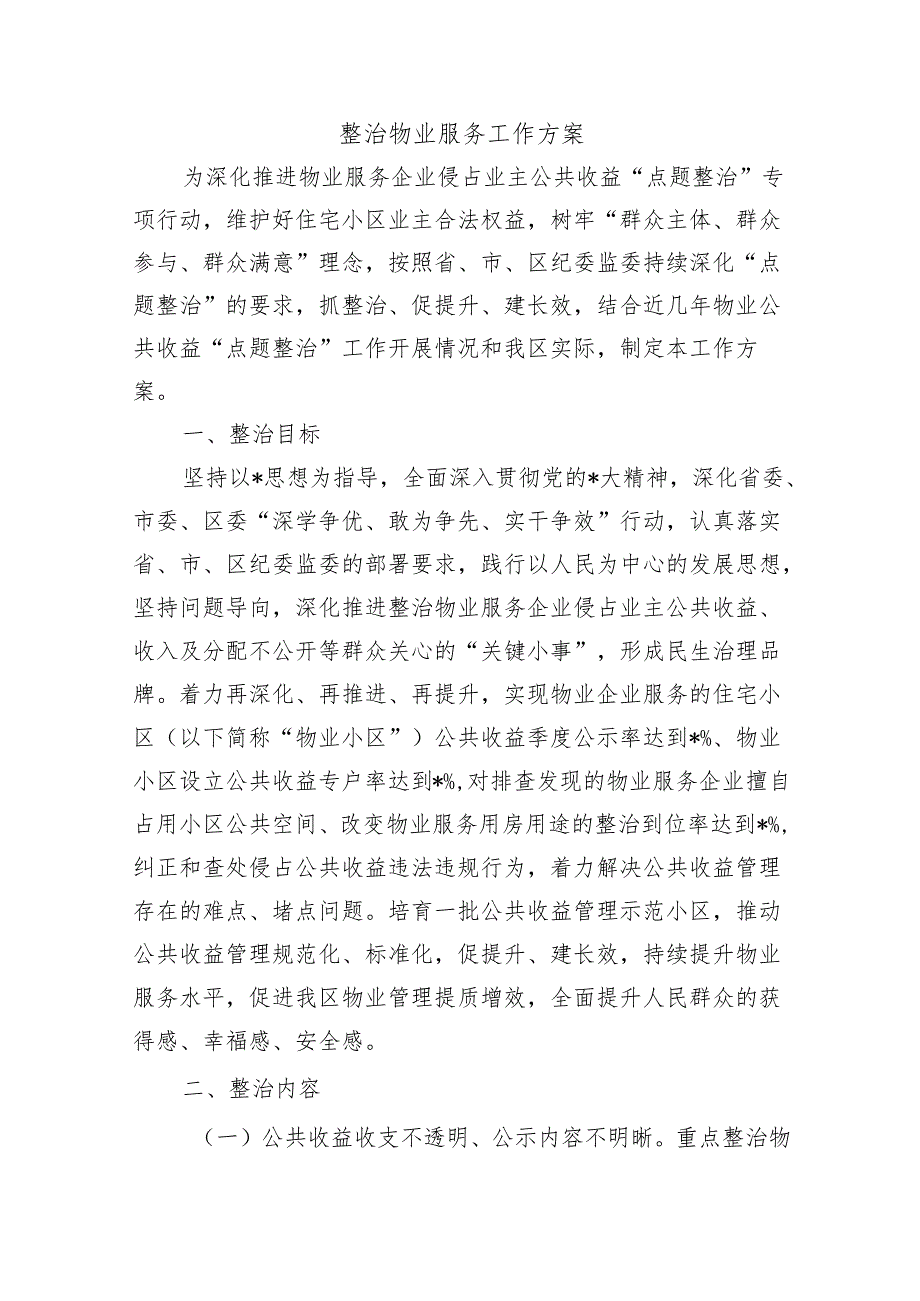 整治物业服务工作方案
为深化推进物业服务企业侵占业主公共收益“点题整治”专
项行动，维护好住宅小区业主合法权益，树牢“群众主体、群众
参与、群众满意”理念，按照省、市、区纪委监委持续深化“点
题整治”的要求，抓整治、促提升、建长效，结合近几年物业公
共收益“点题整治”工作开展情况和我区实际，制定本工作方
案。
一、整治目标
坚持以*思想为指导，全面深入贯彻党的*大精神，深化省委、
市委、区委“深学争优、敢为争先、实干争效”行动，认真落实
省、市、区纪委监委的部署要求，践行以人民为中心的发展思想，
坚持问题导向，深化推进整治物业服务企业侵占业主公共收益、
收入及分配不公开等群众关心的“关键小事”，形成民生治理品
牌。着力再深化、再推进、再提升，实现物业企业服务的住宅小
区（以下简称“物业小区”）公共收益季度公示率达到*%、物业
小区设立公共收益专户率达到*%,对排查发现的物业服务企业擅自
占用小区公共空间、改变物业服务用房用途的整治到位率达到*%,
纠正和查处侵占公共收益违法违规行为，着力解决公共收益管理
存在的难点、堵点问题。培育一批公共收益管理示范小区，推动
公共收益管理规范化、标准化，促提升、建长效，持续提升物业
服务水平，促进我区物业管理提质增效，全面提升人民群众的获
得感、幸福感、安全感。
二、整治内容
（一）公共收益收支不透明、公示内容不明晰。重点整治物